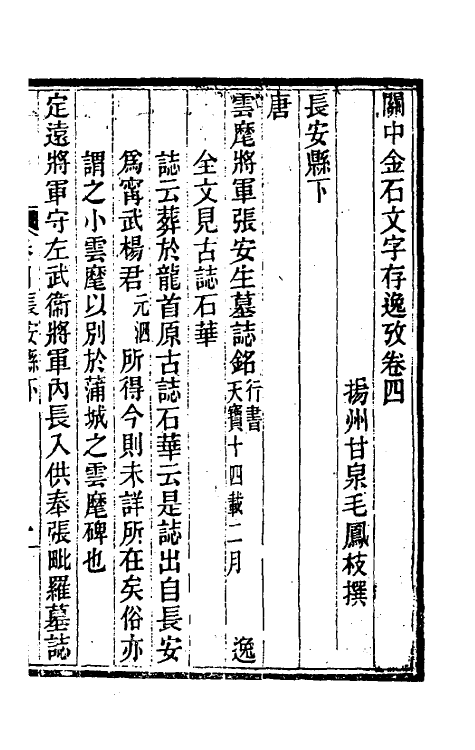 關中金石文字存逸攷卷四
揚州甘泉毛鳳枝撰
長安縣下
唐
雲麾將軍張安生墓誌銘 行書 天寶十四載二月 逸
全文見古誌石華
誌云葬於龍首原古誌石華云是誌出自長安
爲甯武楊君元泗所得今則未詳所在矣俗亦
謂之小雲麾以別於蒲城之雲麾碑也
定遠將軍守左武衞將軍內長入供奉張毗羅墓誌
長安縣下 一